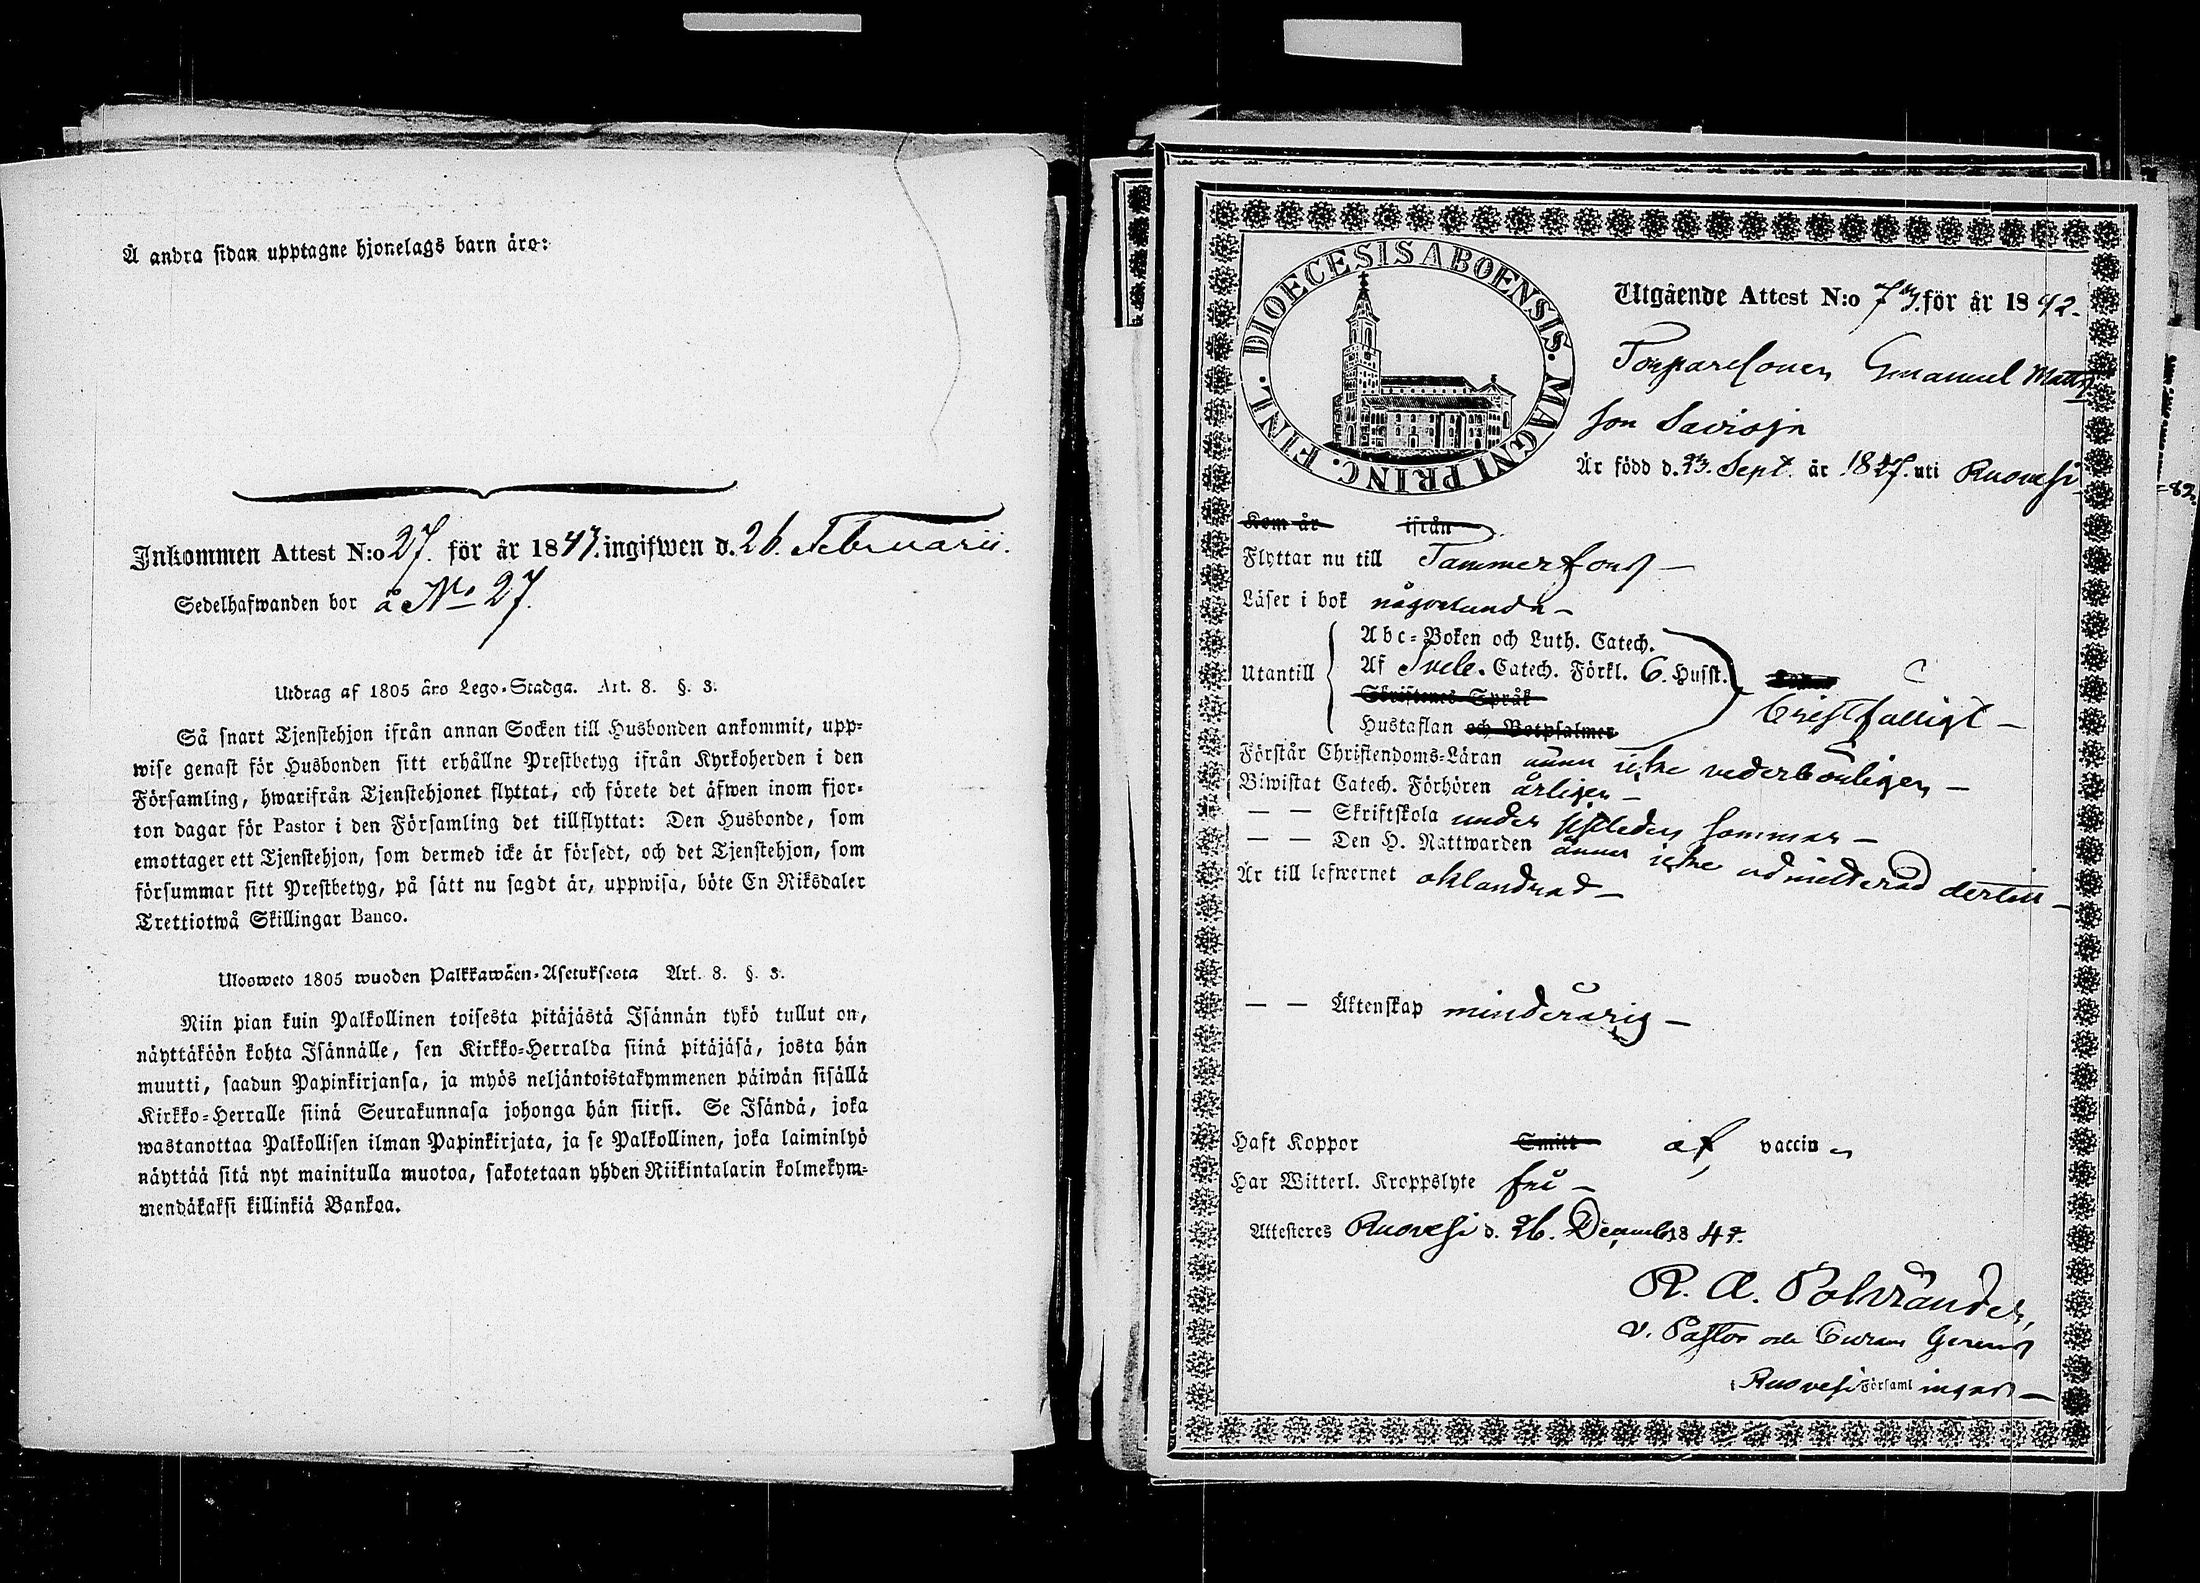 Å andra sidan upptagne hjonelags barn äro:
Inkommen Attest N:o 27. för år 1843. ingifwen d. 26. Februarii.
Sedelhafwanden bor å No 27.
Utdrag af 1805 års Lego-Stadga. Art. 8. §. 3.
Så snart Tjenstehjon ifrån annan Socken till Husbonden ankommit, upp-
wise genast för Husbonden sitt erhållne Prestbetyg ifrån Kyrkoherden i den
Församling, hwarifrån Tjenstehjonet flyttat, och förete det äfwen inom fjor-
ton dagar för Pastor i den Församling det tillflyttat: Den Husbonde, som
emottager ett Tjenstehjon, som dermed icke är försedt, och det Tjenstehjon, som
försummar sitt Prestbetyg, på sätt nu sagdt är, uppwisa, böte En Riksdaler
Trettiotwå Skillingar Banco.
Ulosweto 1805 wuoden Palkkawäen-Asetuksesta Art. 8. §. 3.
Niin pian kuin Palkollinen toisesta pitäjästä Isännän tykö tullut on,
näyttäköön kohta Isännälle, sen Kirkko-Herralda siinä pitäjäsä, josta hän
muutti, saadun Papinkirjansa, ja myös neljäntoistakymmenen päiwän sisällä
Kirkko-Herralle siinä Seurakunnasa johonga hän siirsi. Se Isändä, joka
wastanottaa Palkollisen ilman Papinkirjata, ja se Palkollinen, joka laiminlyö
näyttää sitä nyt mainitulla muotoa, sakotetaan yhden Riikintalarin kolmekym-
mendäkaksi killinkiä Bankoa.
FINL. DIOECESIS ABOENSIS. MAGNI PRINC.
Utgående Attest N:o 73. för år 1842.
Torparesonen Emanuel Matts
son Saviojn
Är född d. 23. Sept. år 1827. uti Ruovesi
Kom år ifrån
Flyttar nu till Tammerfors
Läser i bok någorlunda
Abc-Boken och Luth. Catech.
Utantill Af Sveb. Catech. Förkl. 6. Husst.
Skriftenes Språk
Hustaflan och Botpsalmer
bristfälligt
Förstår Christendoms-Läran ännu icke vederbörligen
Biwistat Catech. Förhören årligen
— — Skriftskola under sistleden sommar
— — Den H. Nattwarden ännu icke admitterad dertill
Är till lefwernet oklandrad
— — Äktenskap minderårig
Haft Koppor Smitt af vaccin
Har Witterl. Kroppslyte fri
Attesteres Ruovesi d. 26. Decemb. 1842.
R. A. Polviander,
v. Pastor och Curam Gerens
i Ruovesi Församlingar
82.